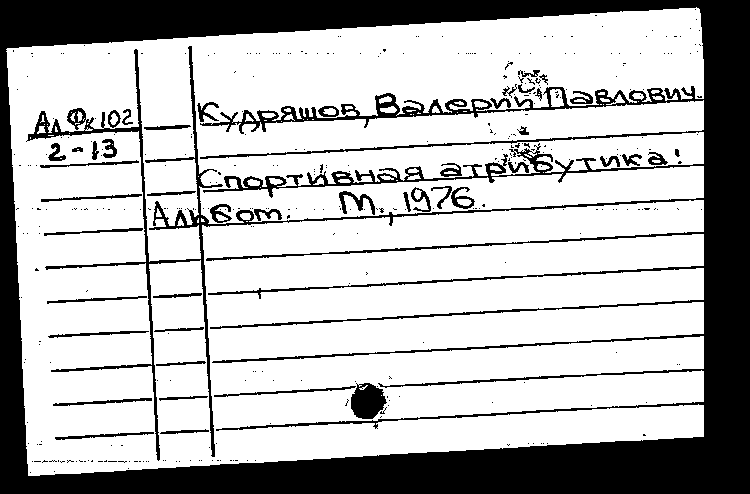 Ал Фк 102
2-13
Кудряшов, Валерий Павлович.
Спортивная атрибутика:
Альбом. М., 1976.